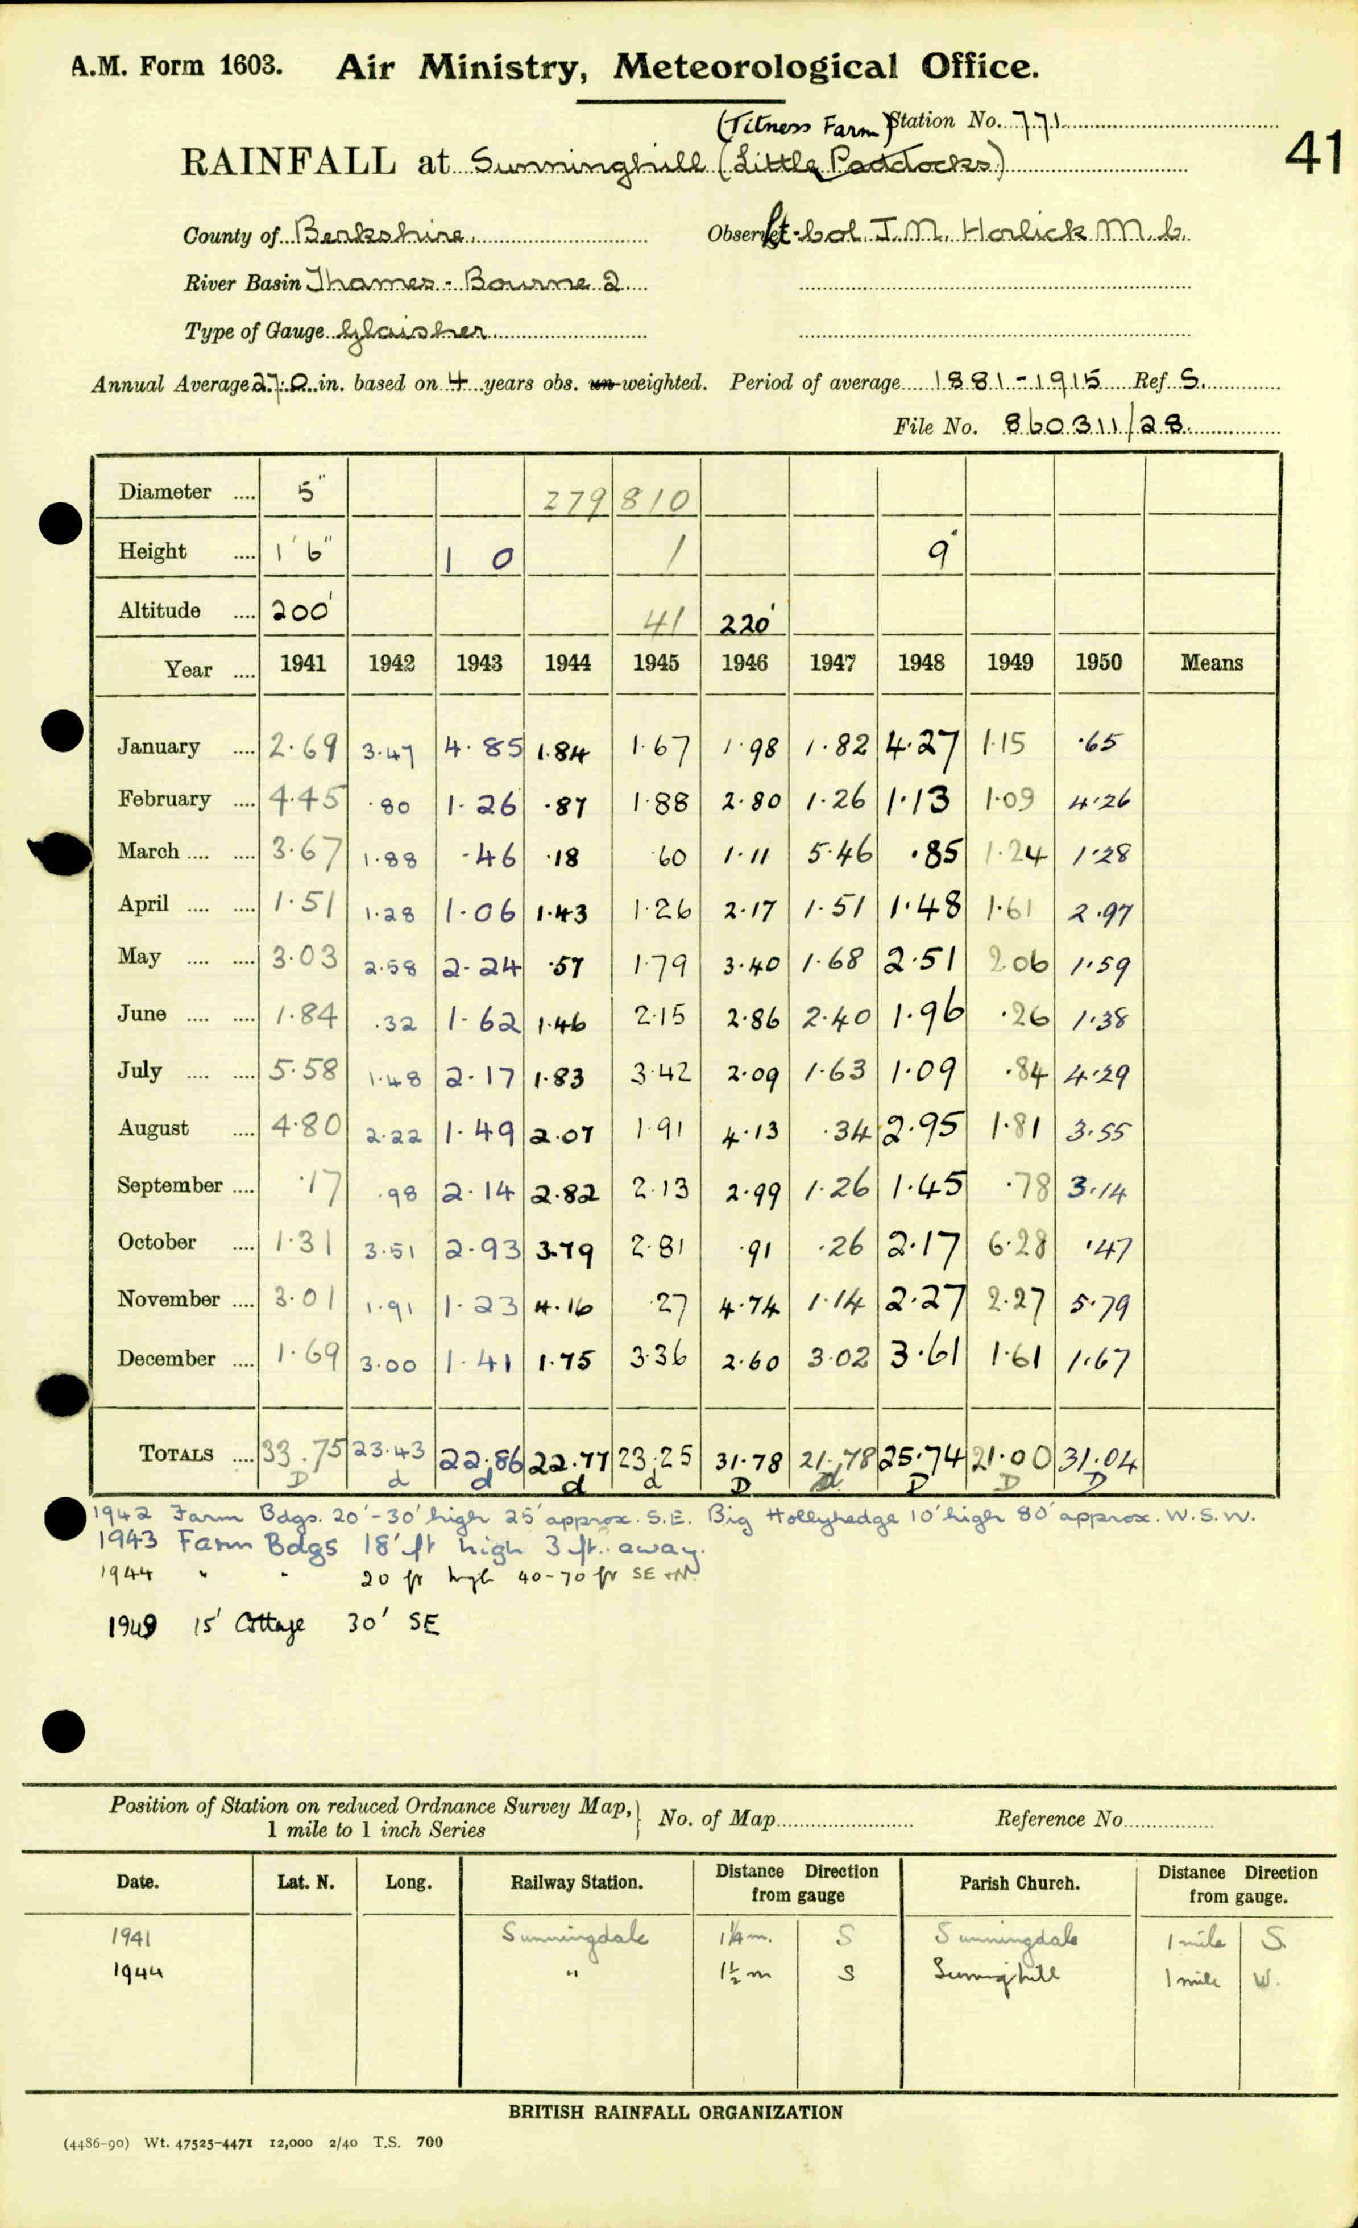 A.M. Form 1603. Air Ministry, Meteorological Office.
(Titness Farm) Station No. 771
41
RAINFALL at Sunninghill (Little Paddocks)
County of Berkshire. Observer Lt-Col J.N. Horlick M.C.
River Basin Thames - Bourne 2
Type of Gauge Glaisher
Annual Average 27.0 in. based on 4 years obs. un-weighted. Period of average 1881-1915 Ref S.
File No. 860311/28
Diameter .... 5" 279 810
Height .... 1' 6" 1 0 1 9"
Altitude .... 200' 41 220'
Year .... 1941 1942 1943 1944 1945 1946 1947 1948 1949 1950 Means
January .... 2.69 3.47 4.85 1.84 1.67 1.98 1.82 4.27 1.15 .65
February .... 4.45 .80 1.26 .87 1.88 2.80 1.26 1.13 1.09 4.26
March .... .... 3.67 1.88 .46 .18 .60 1.11 5.46 .85 1.24 1.28
April .... .... 1.51 1.28 1.06 1.43 1.26 2.17 1.51 1.48 1.61 2.97
May .... .... 3.03 2.58 2.24 .57 1.79 3.40 1.68 2.51 2.06 1.59
June .... .... 1.84 .32 1.62 1.46 2.15 2.86 2.40 1.96 .26 1.38
July .... .... 5.58 1.48 2.17 1.83 3.42 2.09 1.63 1.09 .84 4.29
August .... 4.80 2.22 1.49 2.07 1.91 4.13 .34 2.95 1.81 3.55
September .... .17 .98 2.14 2.82 2.13 2.99 1.26 1.45 .78 3.14
October .... 1.31 3.51 2.93 3.79 2.81 .91 .26 2.17 6.28 .47
November .... 3.01 1.91 1.23 4.16 .27 4.74 1.14 2.27 2.27 5.79
December .... 1.69 3.00 1.41 1.75 3.36 2.60 3.02 3.61 1.61 1.67
TOTALS .... 33.75 23.43 22.86 22.77 23.25 31.78 21.78 25.74 21.00 31.04
D d d d d D d D D D
1942 Farm Bdgs. 20'-30' high 25' approx. S.E. Big Hollyhedge 10' high 80' approx. W.S.W.
1943 Farm Bdgs 18' ft high 3 ft. away.
1944 " " 20 ft high 40-70 ft SE + N
1949 15' Cottage 30' SE
Position of Station on reduced Ordnance Survey Map, } No. of Map Reference No.
1 mile to 1 inch Series
Date. Lat. N. Long. Railway Station. Distance Direction from gauge Parish Church. Distance Direction from gauge.
1941 Sunningdale 1¼ m. S Sunningdale 1 mile S.
1944 " 1½ m S Sunninghill 1 mile W.
BRITISH RAINFALL ORGANIZATION
(4486-90) Wt. 47525-4471 12,000 2/40 T.S. 700